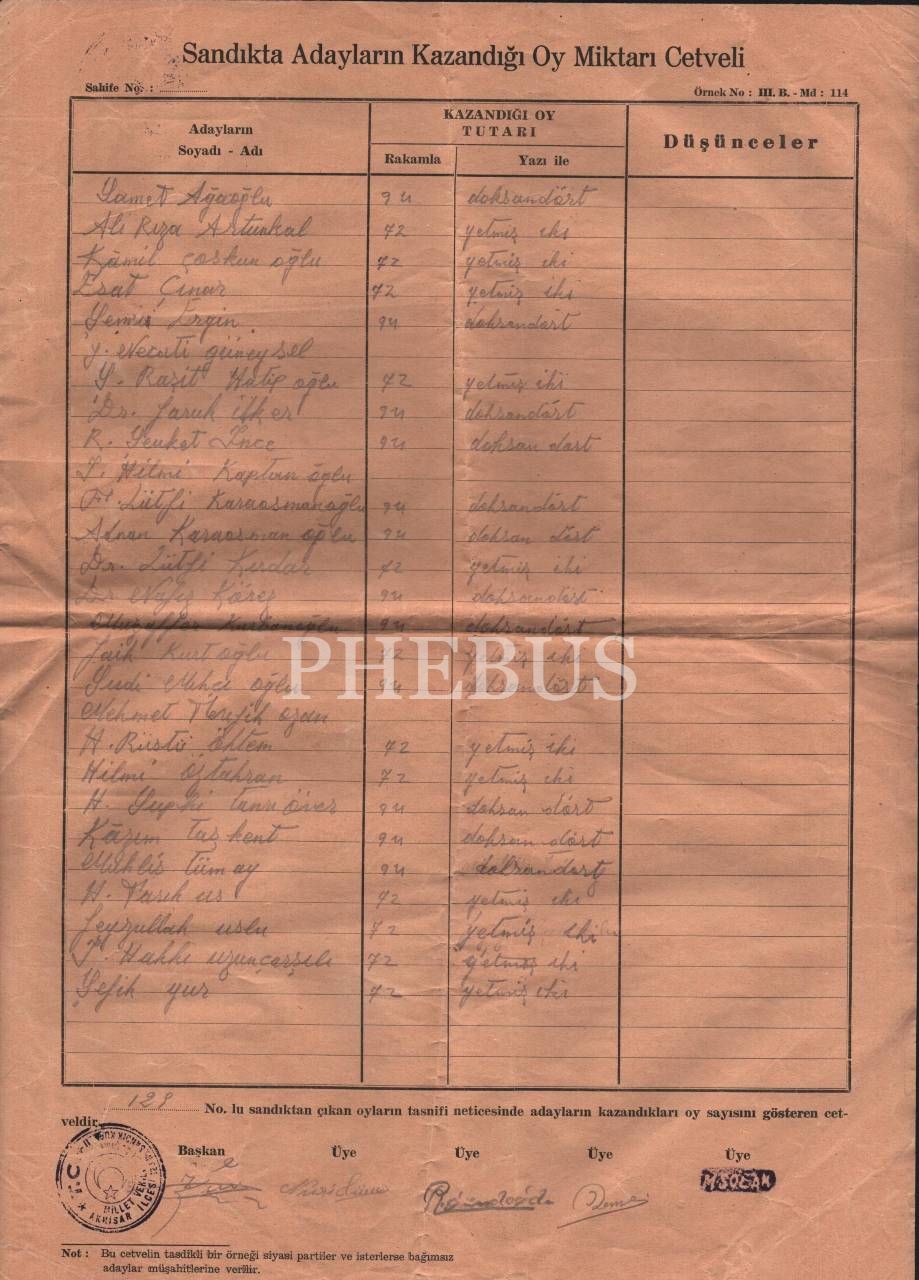 Sandıkta Adayların Kazandığı Oy Miktarı Cetveli
Sahife No. :
Örnek No : III. B. - Md : 114
Adayların
Soyadı - Adı
KAZANDIĞI OY
TUTARI
Rakamla
Yazı ile
Düşünceler
Samet Ağaoğlu 94 doksandört
Ali Rıza Artunkal 72 yetmiş iki
Kâmil Çoskun oğlu 72 yetmiş iki
Esat Çınar 72 yetmiş iki
Şemi Ergin 94 doksandört
Y. Necati güneysel
Ş. Raşit Hatip oğlu 72 yetmiş iki
Dr. Faruk ilker 94 doksandört
R. Şevket İnce 94 doksan dört
Hilmi Kaptan oğlu
F. Lütfi Karaosmanoğlu 94 doksandört
Adnan Karaosman oğlu 94 doksan dört
Dr. Lütfi Kırdar 72 yetmiş iki
Dr Nafiz Körez 94 doksandört
Muzaffer Kurbanoğlu 94 doksandört
Faik Kurtoğlu 72 yetmiş iki
Sudi Mıhcı oğlu 94 doksandört
Mehmet ozan
H. Rüştü Öktem 72 yetmiş iki
Hilmi öztahran 72 yetmiş iki
H. Suphi tanrı över 94 doksan dört
Kâzım taşkent 94 doksan dört
Muhlis tümay 94 doksandört
H. Tarık us 72 yetmiş iki
Feyzullah uslu 72 yetmiş iki
Hakkı uzunçarşılı 72 yetmiş iki
Şefik yur 72 yetmiş iki
PHEBUS
129 No. lu sandıktan çıkan oyların tasnifi neticesinde adayların kazandıkları oy sayısını gösteren cet-
veldir.
Başkan Üye Üye Üye Üye
M SOLAK
AKHİSAR İLÇESİ
Not : Bu cetvelin tasdikli bir örneği siyasi partiler ve isterlerse bağımsız
adaylar müşahitlerine verilir.